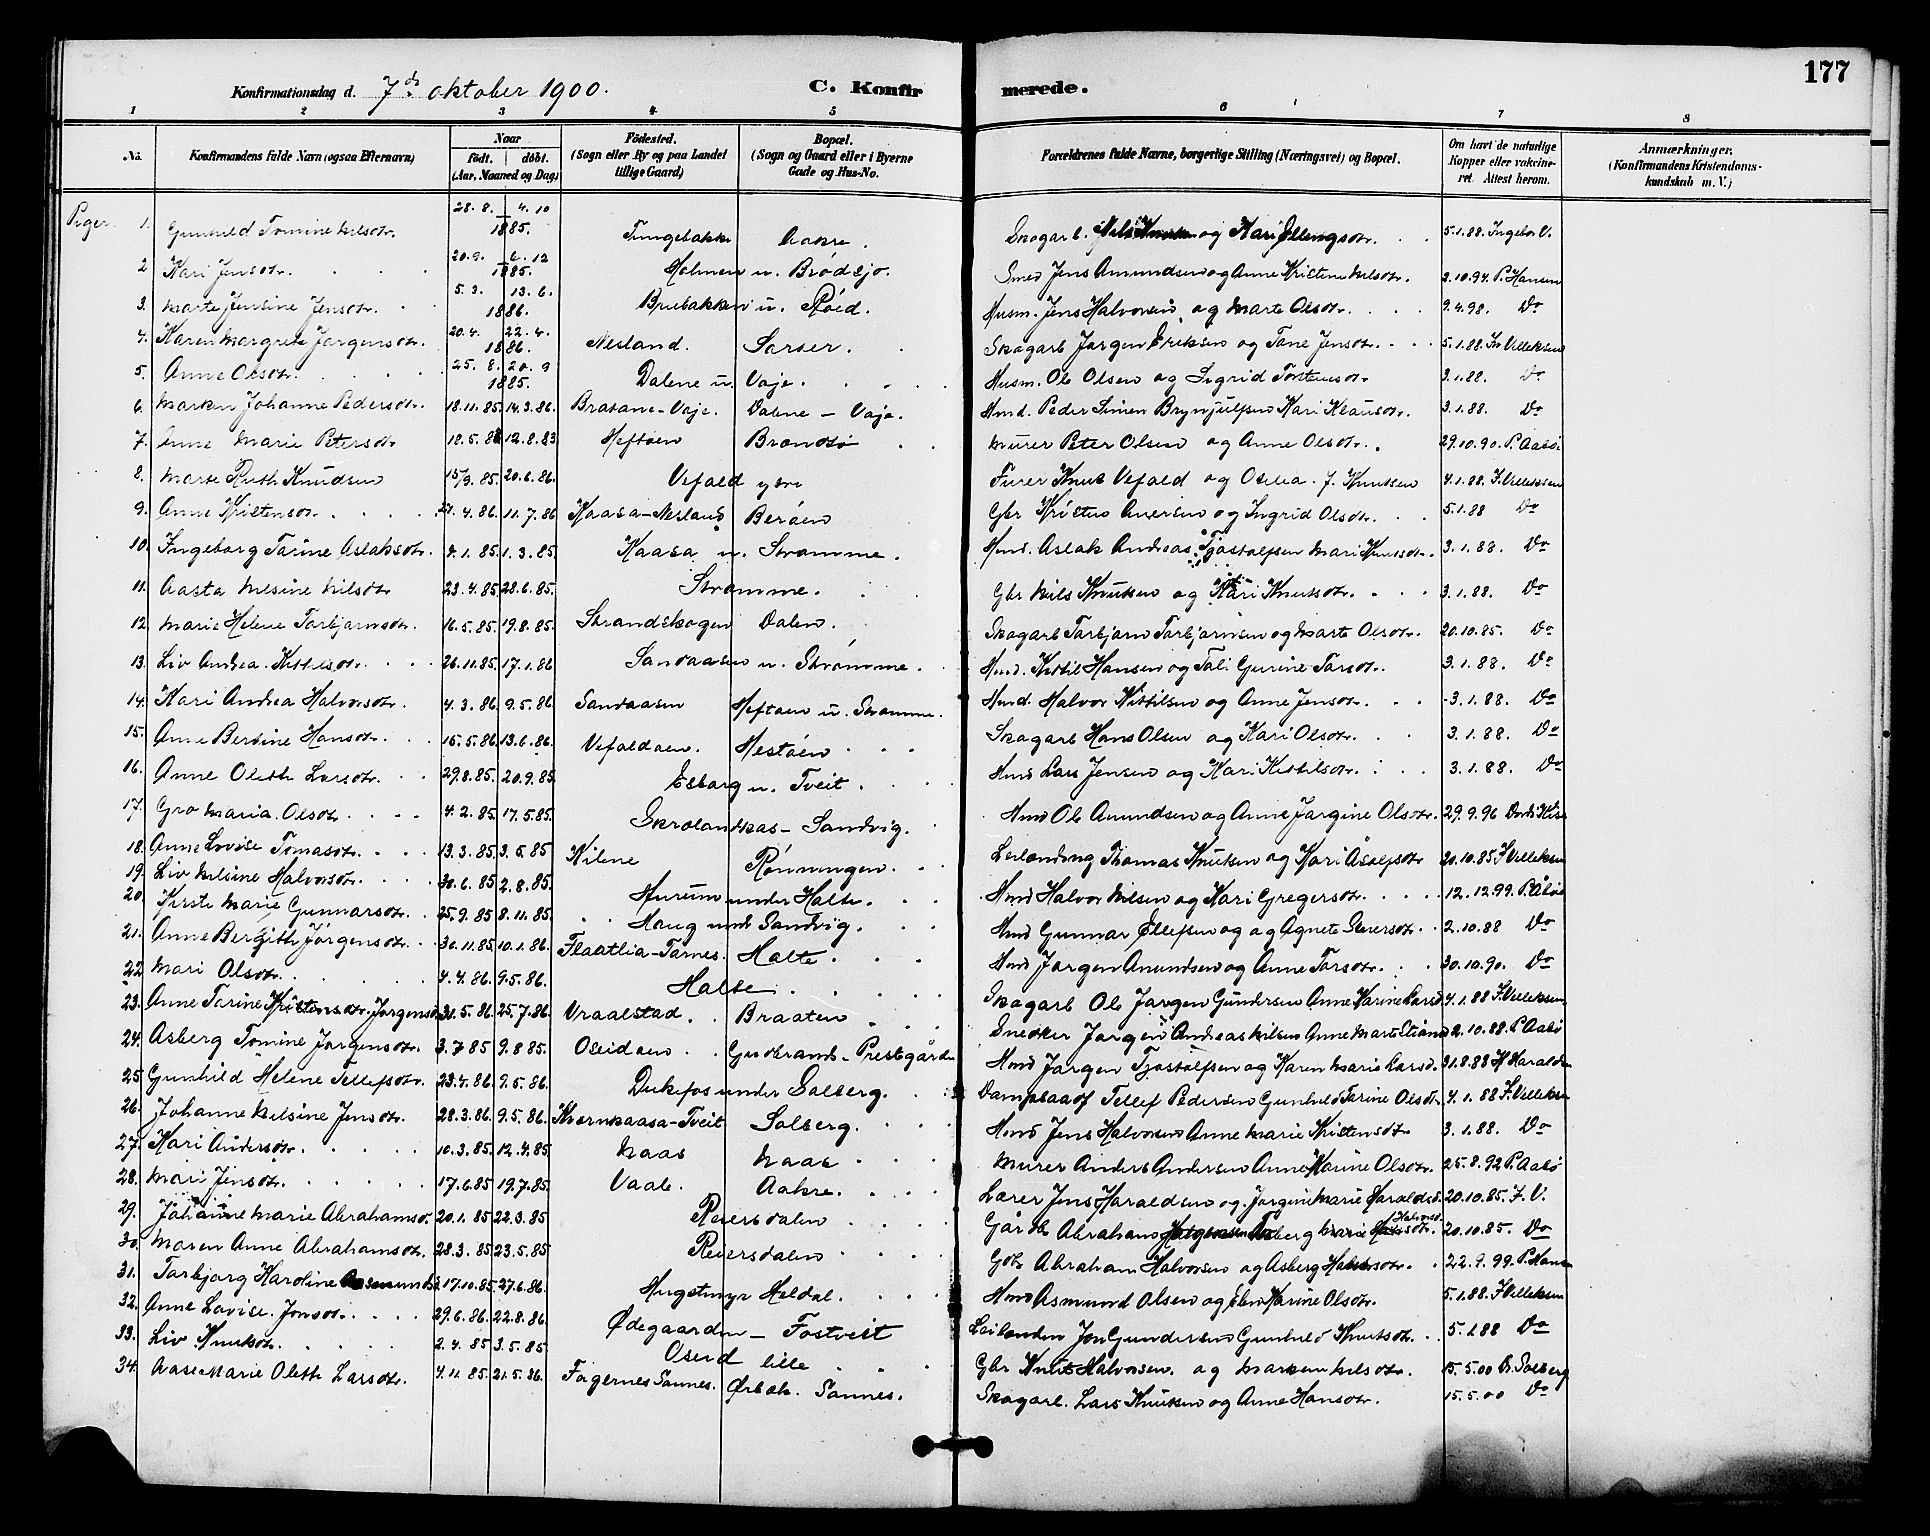 177
Konfirmationsdag d. 7de oktober 1900. C. Konfirmerede.
1 2 3 4 5 6 7 8
No. Konfirmandens fulde Navn (ogsaa Efternavn) Naar født. døbt. (Aar, Maaned og Dag) Fødested. (Sogn eller By og paa Landet tillige Gaard) Bopæl. (Sogn og Gaard eller i Byerne Gade og Hus-No. Forældrenes fulde Navne, borgerlige Stilling (Næringsvei) og Bopæl. Om havt de naturlige Kopper eller vakcineret. Attest herom. Anmærkninger. (Konfirmandens Kristendomskundskab m. V.)
Piger. 1. Gunhild Tomine Nilsdtr. 28. 8. 4. 10 1885. Tungebakke Aakre. Skogarb. Nils Knutsen og Kari Ellingsdtr. 5.1.88. Ingebor V.
2 Kari Jensdtr. 20.9. 6. 12 1885. Holmen u. Brødsjø. Smed Jens Amundsen og Anne Kristine Nilsdtr. 2.10.94. P. Hansen
3. Marte Jensine Jensdtr. 5. 3. 13. 6. 1886. Brubakken u. Røid. Husm. Jens Halvorsen og Marte Olsdtr. 9.4.98. Do
4. Karen Margrete Jørgensdtr. 20. 4. 22. 4. 1886. Nesland. Sørser. Skogarb Jørgen Eriksen og Tone Jensdtr. 5.1.88. Villeksen
5. Anne Olsdtr. 25. 8. 20. 9 1885. Dalene u. Vaje. Husm. Ole Olsen og Sigrid Torstensdtr. 3.1.88. Do
6. Marken Johanne Pedersdtr. 18.11.85. 14.3.86. Brasane - Vaje. Dalene - Vaje. Hmd. Peder Simen Brynjulfsen Kari Klausdtr. 3.1.88. Do
7. Anne Marie Petersdtr 18.5.86 12.8.83 Heftøen Brandsø Murer Peter Olsen og Anne Olsdtr. 29.10.90. P. Aabø.
8. Marte Ruth Knudsen 15/9.85. 20.6.86. Vefald ytre Furer Knut Vefald og Oselia f. Knutsen 4.1.88. J. Villeksen
9. Anne Kristensdtr. 21.4.86. 11.7.86 Kaasa-Nesland Berøen Gbr Kristen Andersen og Ingrid Olsdtr. 5.1.88 Do
10. Ingeborg Tarine Aslaksdtr. 4.1.85. 1.3.85. Kaasa u. Strømme. Hmd. Aslak Andreas Tjøstolfsen Mari Knutsdtr. 3.1.88. Do
11. Aasta Nilsine Nilsdtr 23.4.85. 28.6.85. Strømme. Gbr Nils Knutsen og Kari Knutsdtr. 3.1.88. Do
12. Marie Helene Torbjørnsdtr. 16.5.85. 19.8.85. Strandskogen Dalen. Skogarb Torbjørn Torbjørnsen og Marte Olsdtr. 20.10.85. Do
13. Liv Andrea Kittilsdtr. 26.11.85. 17.1.86 Sandaasen u. Strømme. Hmd. Kittil Hansen og Tale Gurine Torsdtr. 3.1.88. Do
14. Kari Andrea Halvorsdtr. 4.3.86. 9.5.86. Sandaasen Heftøen u. Strømme. Hmd. Halvor Kittilsen og Anne Jensdtr. 3.1.88. Do
15. Anne Bertine Hansdtr. 15.5.86. 13.6.86. Vefaldøen. Hestøen Skogarb Hans Olsen og Kari Olsdtr. 3.1.88. Do
16. Anne Oleth Larsdtr. 29.8.85. 20.9.85. Esborg u. Tveit. Hmd Lars Jensen og Kari Kittilsdtr. 3.1.88. Do
17. Gro Maria Olsdtr 4.2.85. 17.5.85. Skrolandkas - Sandvig. Hmd Ole Amundsen og Anne Jørgine Olsdtr. 29.9.96
18. Anne Lovise Tomasdtr. 13.3.85. 3.5.85 Kilene Rønningen. Leilending Thomas Knutsen og Kari Asolfsdtr 20.10.85 J. Villeksen
19. Liv Nilsine Halvorsdtr. 30.6.85 2.8.85. Murum under Halte. Hmd Halvor Nilsen og Kari Gregersdtr. 12.12.99. P. Åbø
20. Kirste Marie Gunnarsdtr. 25.9.85 8.11.85. Haug und Sandvig. Hmd Gunnar Ellefsen og og Agnete Sverersdtr. 2.10.88 Do
21. Anne Bergitte Jørgensdtr. 30.11.85. 10.1.86. Flaatlia-Tørnes. Halte. Hmd Jørgen Amundsen og Anne Torsdtr. 30.10.90. Do
22 Mari Olsdtr. 4.4.86. 9.5.86. Halte Skogarb Ole Jørgen Gundersen Anne Karine Larsd 4.1.88 J. Villeksen
23. Anne Tarine Kristensdtr. Jørgensd. 31.5.86. 25.7.86. Vraalstad. Braaten Snedker Jørgen Andreas Nilsen Anne Marte Stiansd 2.10.88. P. Aabø
24. Asberg Tomine Jørgensdtr. 3.7.85 9.8.85. Oseidøen. Gudbrands - Prestgården Hmd Jørgen Tjøstolfsen og Karen Marie Larsd. 31.8.88 H Haralds
25 Gunhild Helene Tellefsdtr. 23.4.86. 9.5.86. Dukefos under Solberg. Dampbaadf Tellef Pedersen Gunhild Tarine Olsdtr. 4.1.88 J. Villeksen
26. Johanne Nilsine Jensdtr. 28.3.86. 9.5.86. Kvernkaasa-Tveit Solberg. Hmd Jens Halvorsen Anne Marie Kristensdtr 3.1.88. Do
27. Kari Andersdtr. 10.3.85. 12.4.85. Naas Naas Murer Anders Andersen Anne Karine Olsdtr. 25.8.92 P. Aabø
28. Mari Jensdtr. 17.6.85 19.7.85. Vaale. Aakre. Lærer Jens Haraldsen og Jørgine Marie Haraldsd. 20.10.85. J. V.
29. Johanne Marie Abrahamsd. 20.1.85 22.3.85 Reiersdalen Gårdb Abraham Torberg Marie Halvorsd. 20.10.85. Do
30. Maren Anne Abrahamsdtr. 28.3.85 23.5.85 Reiersdalen Gdbr Abraham Halvorsen og Asberg Halvorsdtr. 22.9.99 P. Hansen
31. Torbjørg Karoline Aasmunds. 17.10.85. 27.6.86. Hugstmyr Heldal. Hmd Asmund Olsen og Elen Karine Olsdtr. 5.1.88 J. Villeksen
32. Anne Lovise Jonsdtr. 29.6.86. 22.8.86. Ødegaarden - Fostveit Leilenden Jon Gundersen Gunhild Knutsdtr. 5.1.88 Do
33. Liv Knutsdtr. 2.4.85 3.5.85. Oseid lille Gbr Knut Halvorsen og Marken Nilsdtr. 15.5.00 Dr. Solberg
34. Aase Marie Oleth Larsdtr. 4.11.85. 21.5.86. Fagernes Sannes. Ørbek. Sannes. Skogarb. Lars Knutsen og Anne Hansdtr. 15.5.00 Do